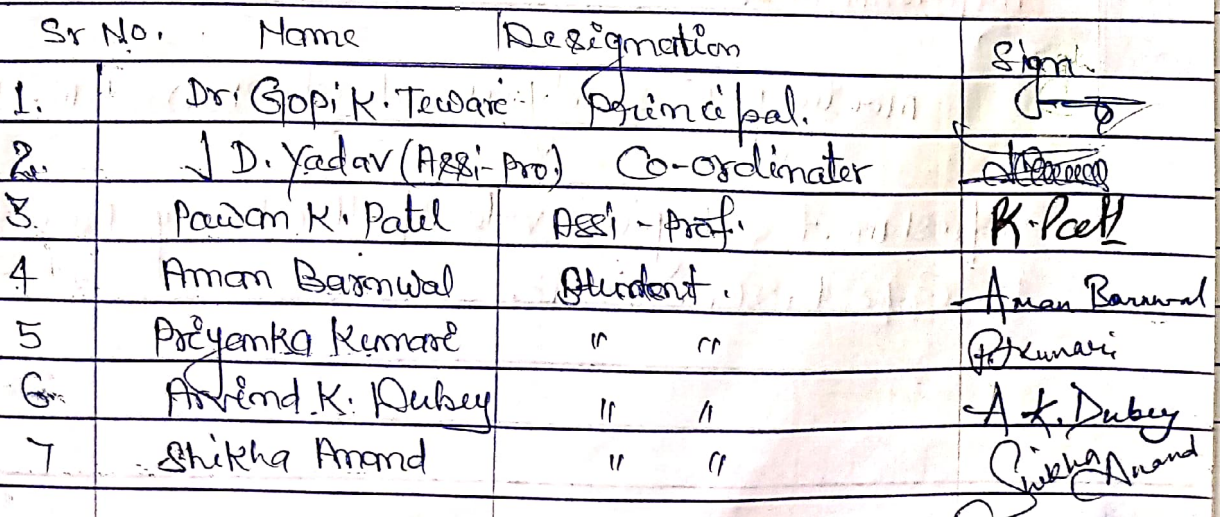 Sr No. Name Designation Sign.
1. Dr. Gopi K. Teware Principal.
2. J D. Yadav (Assi-Pro.) Co-ordinater
3. Pawan K. Patel Assi - Prof. K. Patel
4 Aman Barnwal Student. Aman Barnwal
5 Priyanka Kumari " " P. Kumari
6. Arvind K. Dubey " " A K. Dubey
7 Shikha Anand " " Shikha Anand